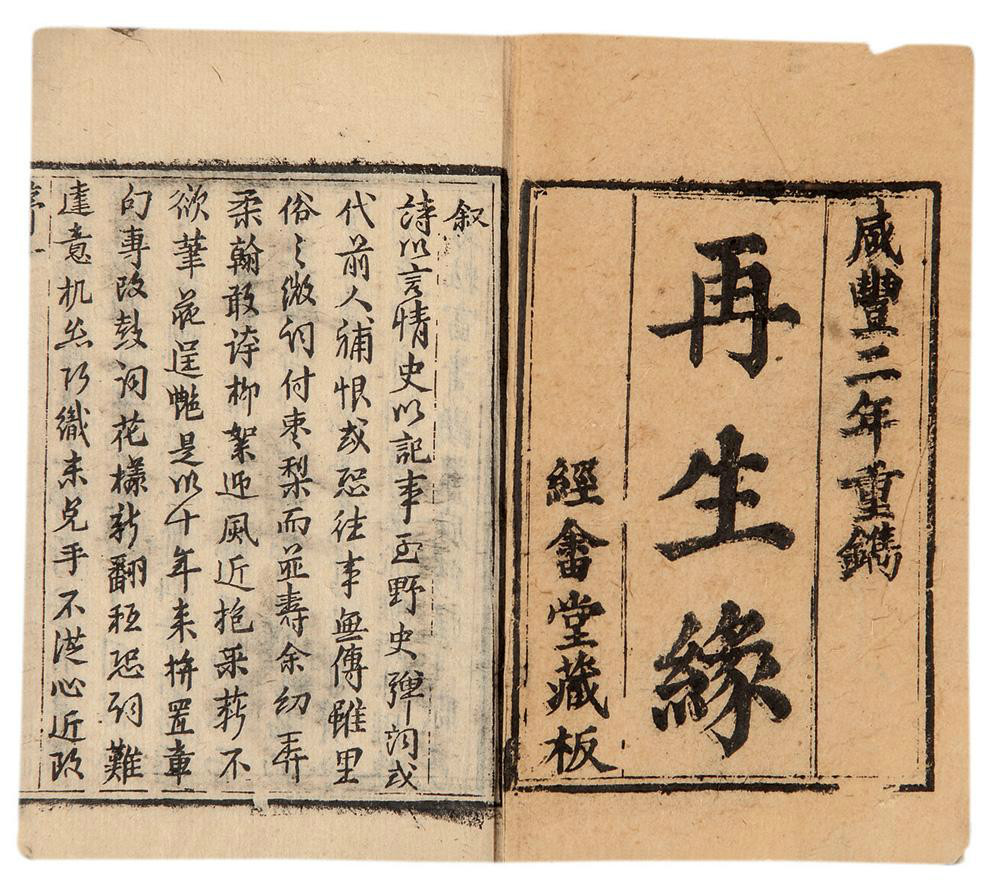 咸豐二年重鐫
再生緣
經畬堂藏板
叙
詩以言情史以記事至野史彈詞或
代前人補恨或恐往事無傳雖里
俗之微詞付枣梨而並壽余幼弄
柔翰敢誇柳絮迎風近抱采薪不
欲筆花逞艶是以十年来擠置章
句専改鼓詞花樣新翻秪恐词難
達意机丝巧織未免手不従心近改